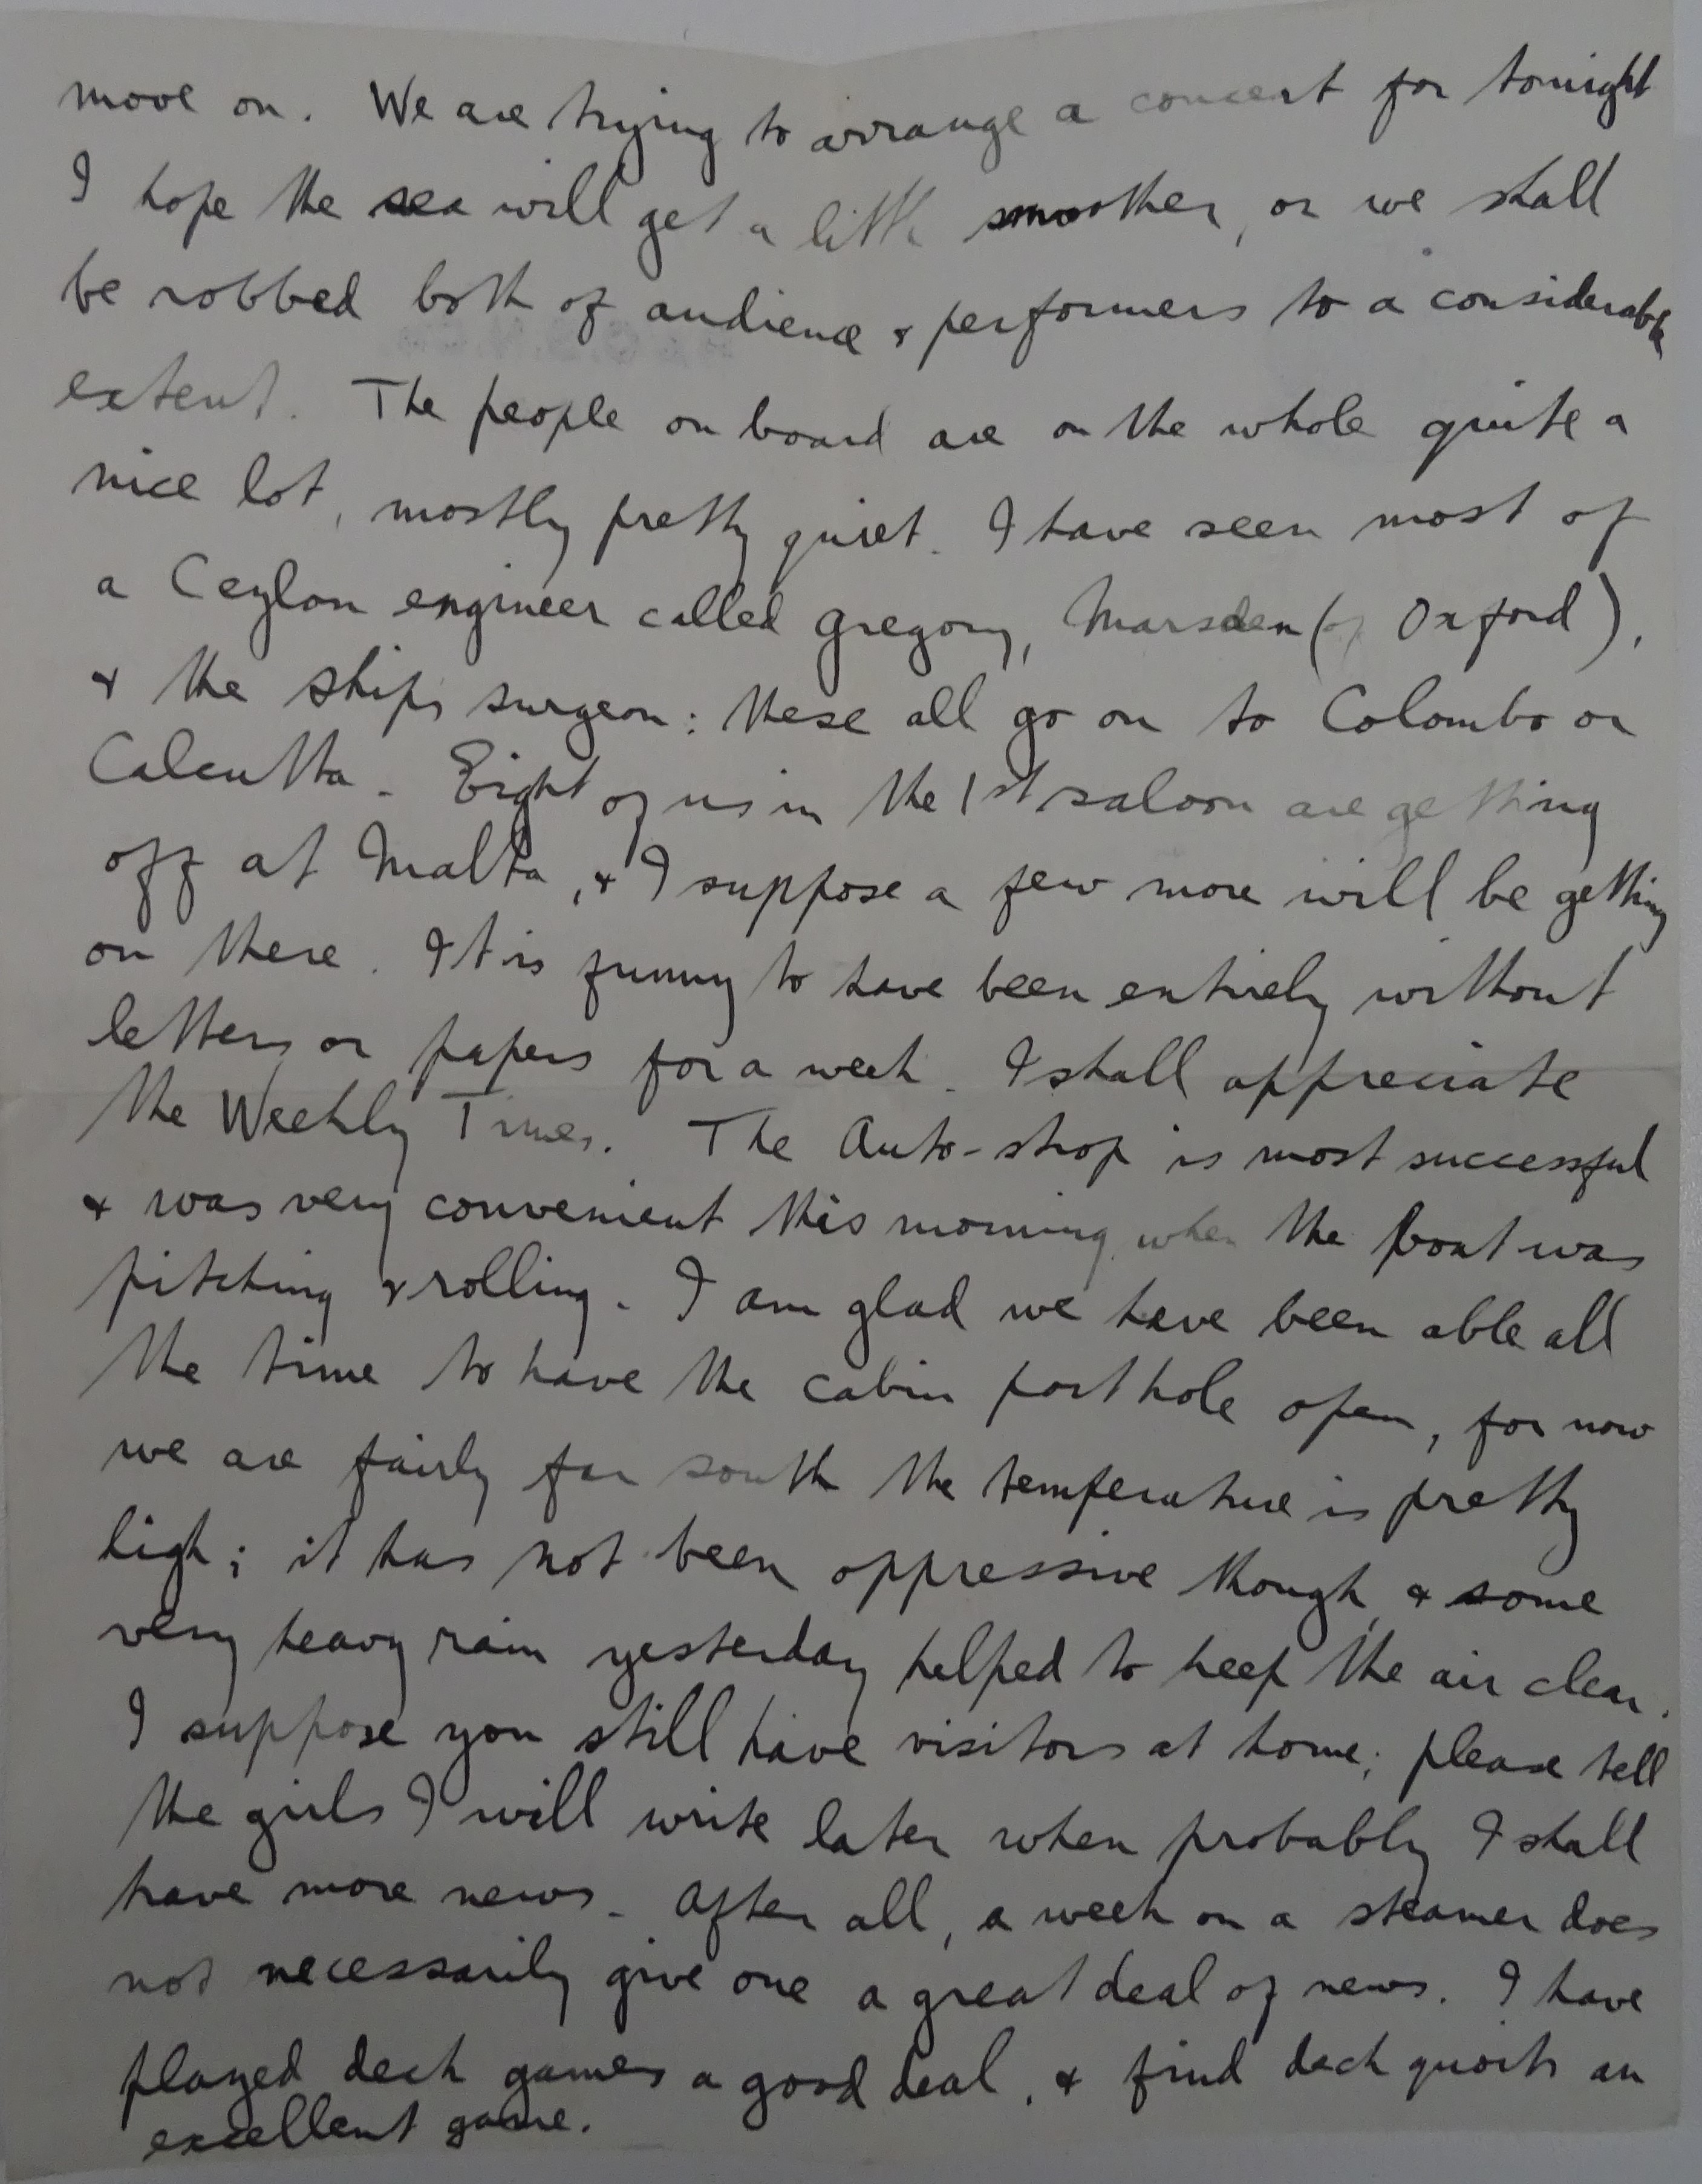 move on. We are trying to arrange a concert for tonight
I hope the sea will get a little smoother, or we shall
be robbed both of audience & performers to a considerable
extent. The people on board are on the whole quite a
nice lot, mostly pretty quiet. I have seen most of
a Ceylon engineer called Gregory, Marsden (of Oxford),
& the ship's surgeon: these all go on to Colombo or
Calcutta. Eight of us in the 1st saloon are getting
off at Malta, & I suppose a few more will be getting
on there. It is funny to have been entirely without
letters or papers for a week. I shall appreciate
the Weekly Times. The Auto-strop is most successful
& was very convenient this morning when the boat was
pitching & rolling. I am glad we have been able all
the time to have the cabin porthole open, for now
we are fairly far south the temperature is pretty
high; it has not been oppressive though, & some
very heavy rain yesterday helped to keep the air clear.
I suppose you still have visitors at home; please tell
the girls I will write later when probably I shall
have more news. After all, a week on a steamer does
not necessarily give one a great deal of news. I have
played deck games a good deal, & find deck quoits an
excellent game.